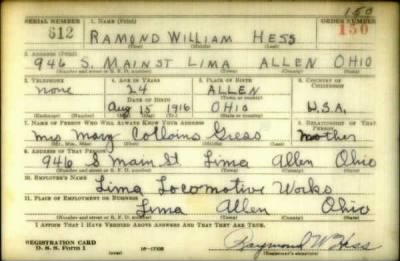 150
SERIAL NUMBER 1. NAME (Print) ORDER NUMBER
612 RAMOND WILLIAM HESS 150
(First) (Middle) (Last)
2. ADDRESS (Print)
946 S. MAIN ST LIMA ALLEN OHIO
(Number and street or R. F. D. number) (Town) (County) (State)
3. TELEPHONE 4. AGE IN YEARS 5. PLACE OF BIRTH 6. COUNTRY OF CITIZENSHIP
none 24 ALLEN
DATE OF BIRTH (Town or county)
Aug 15 1916 OHIO U.S.A.
(Exchange) (No.) (Mo.) (Day) (Yr.) (State or country)
7. NAME OF PERSON WHO WILL ALWAYS KNOW YOUR ADDRESS 8. RELATIONSHIP OF THAT PERSON
Mrs Mary Mother
(Mr., Mrs., Miss) (First) (Middle) (Last)
9. ADDRESS OF THAT PERSON
946 S Main St Lima Allen Ohio
(Number and street or R. F. D. number) (Town) (County) (State)
10. EMPLOYER'S NAME
Lima Locomotive Works
11. PLACE OF EMPLOYMENT OR BUSINESS
Lima Allen Ohio
(Number and street or R. F. D. number) (Town) (County) (State)
I AFFIRM THAT I HAVE VERIFIED ABOVE ANSWERS AND THAT THEY ARE TRUE.
REGISTRATION CARD
D. S. S. Form 1 Raymond W Hess
(Registrant's signature)